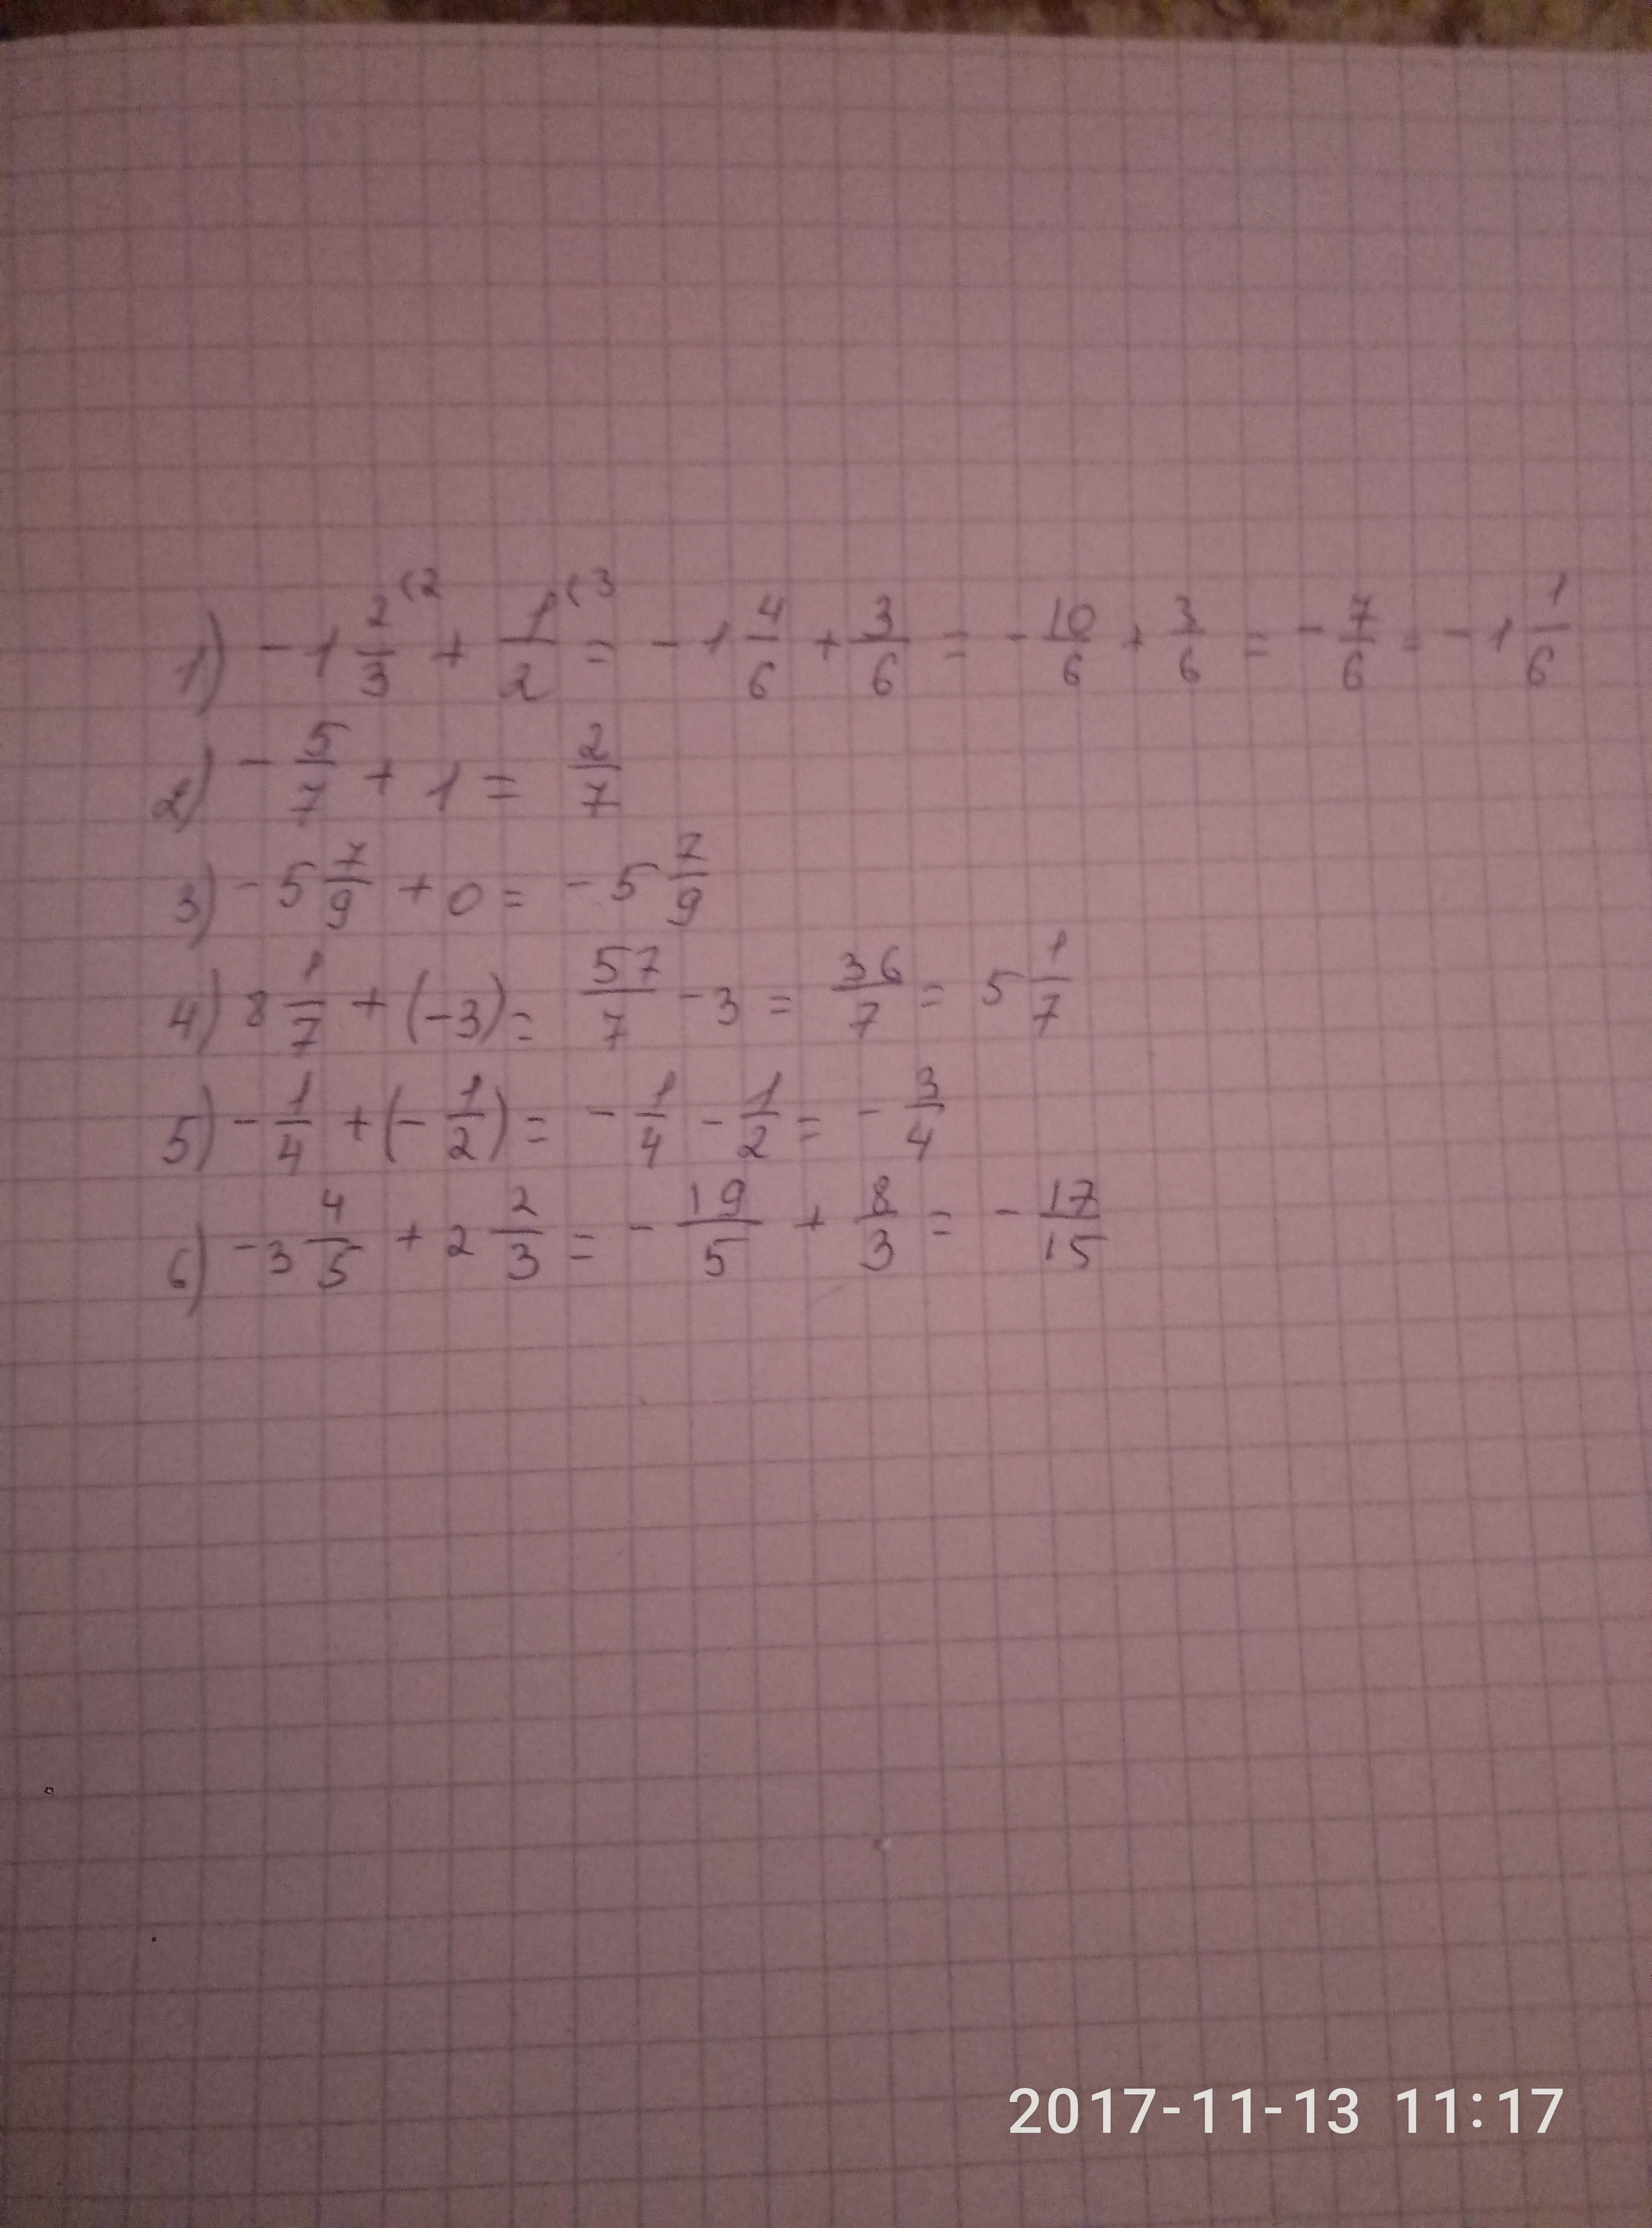 1) -1 2/3 (2 + 1/2 (3 = -1 4/6 + 3/6 = - 10/6 + 3/6 = - 7/6 = -1 1/6
2) - 5/7 + 1 = 2/7
3) -5 7/9 + 0 = -5 7/9
4) 8 1/7 + (-3) = 57/7 - 3 = 36/7 = 5 1/7
5) - 1/4 + (- 1/2) = - 1/4 - 1/2 = - 3/4
6) -3 4/5 + 2 2/3 = - 19/5 + 8/3 = - 17/15
2017-11-13 11:17